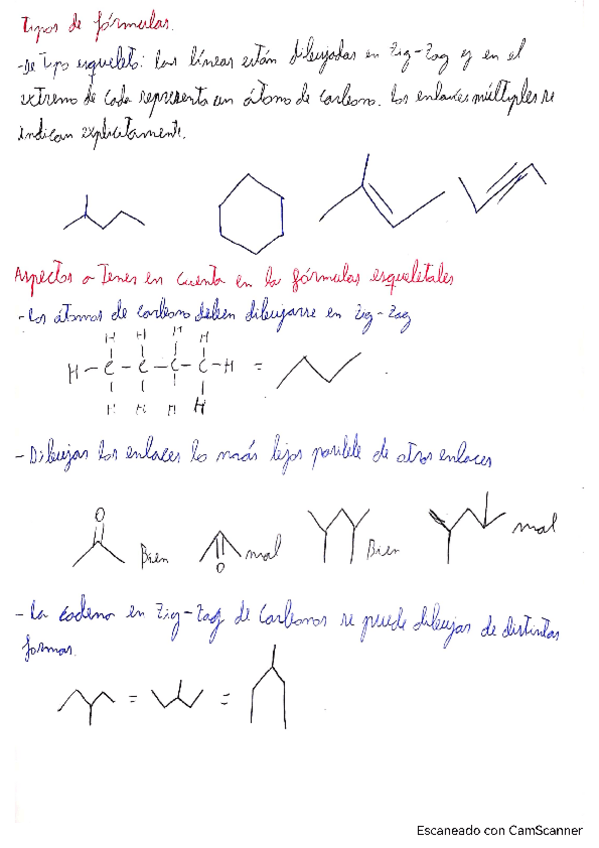 Tipos de fórmulas.
-De tipo esqueleto: las líneas están dibujadas en Zig-Zag y en el
extremo de cada representa un átomo de carbono. los enlaces múltiples se
indican explicitamente.
Aspectos a Tener en cuenta en las fórmulas esqueletales
-Los átomos de carbono deben dibujarse en Zig-Zag
H H H H
H-C-C-C-C-H =
H H H H
-Dibujar los enlaces lo más lejos posible de otros enlaces
O
Bien mal Bien mal
O
-La cadena en Zig-Zag de Carbonos se puede dibujar de distintas
formas.
= =
Escaneado con CamScanner